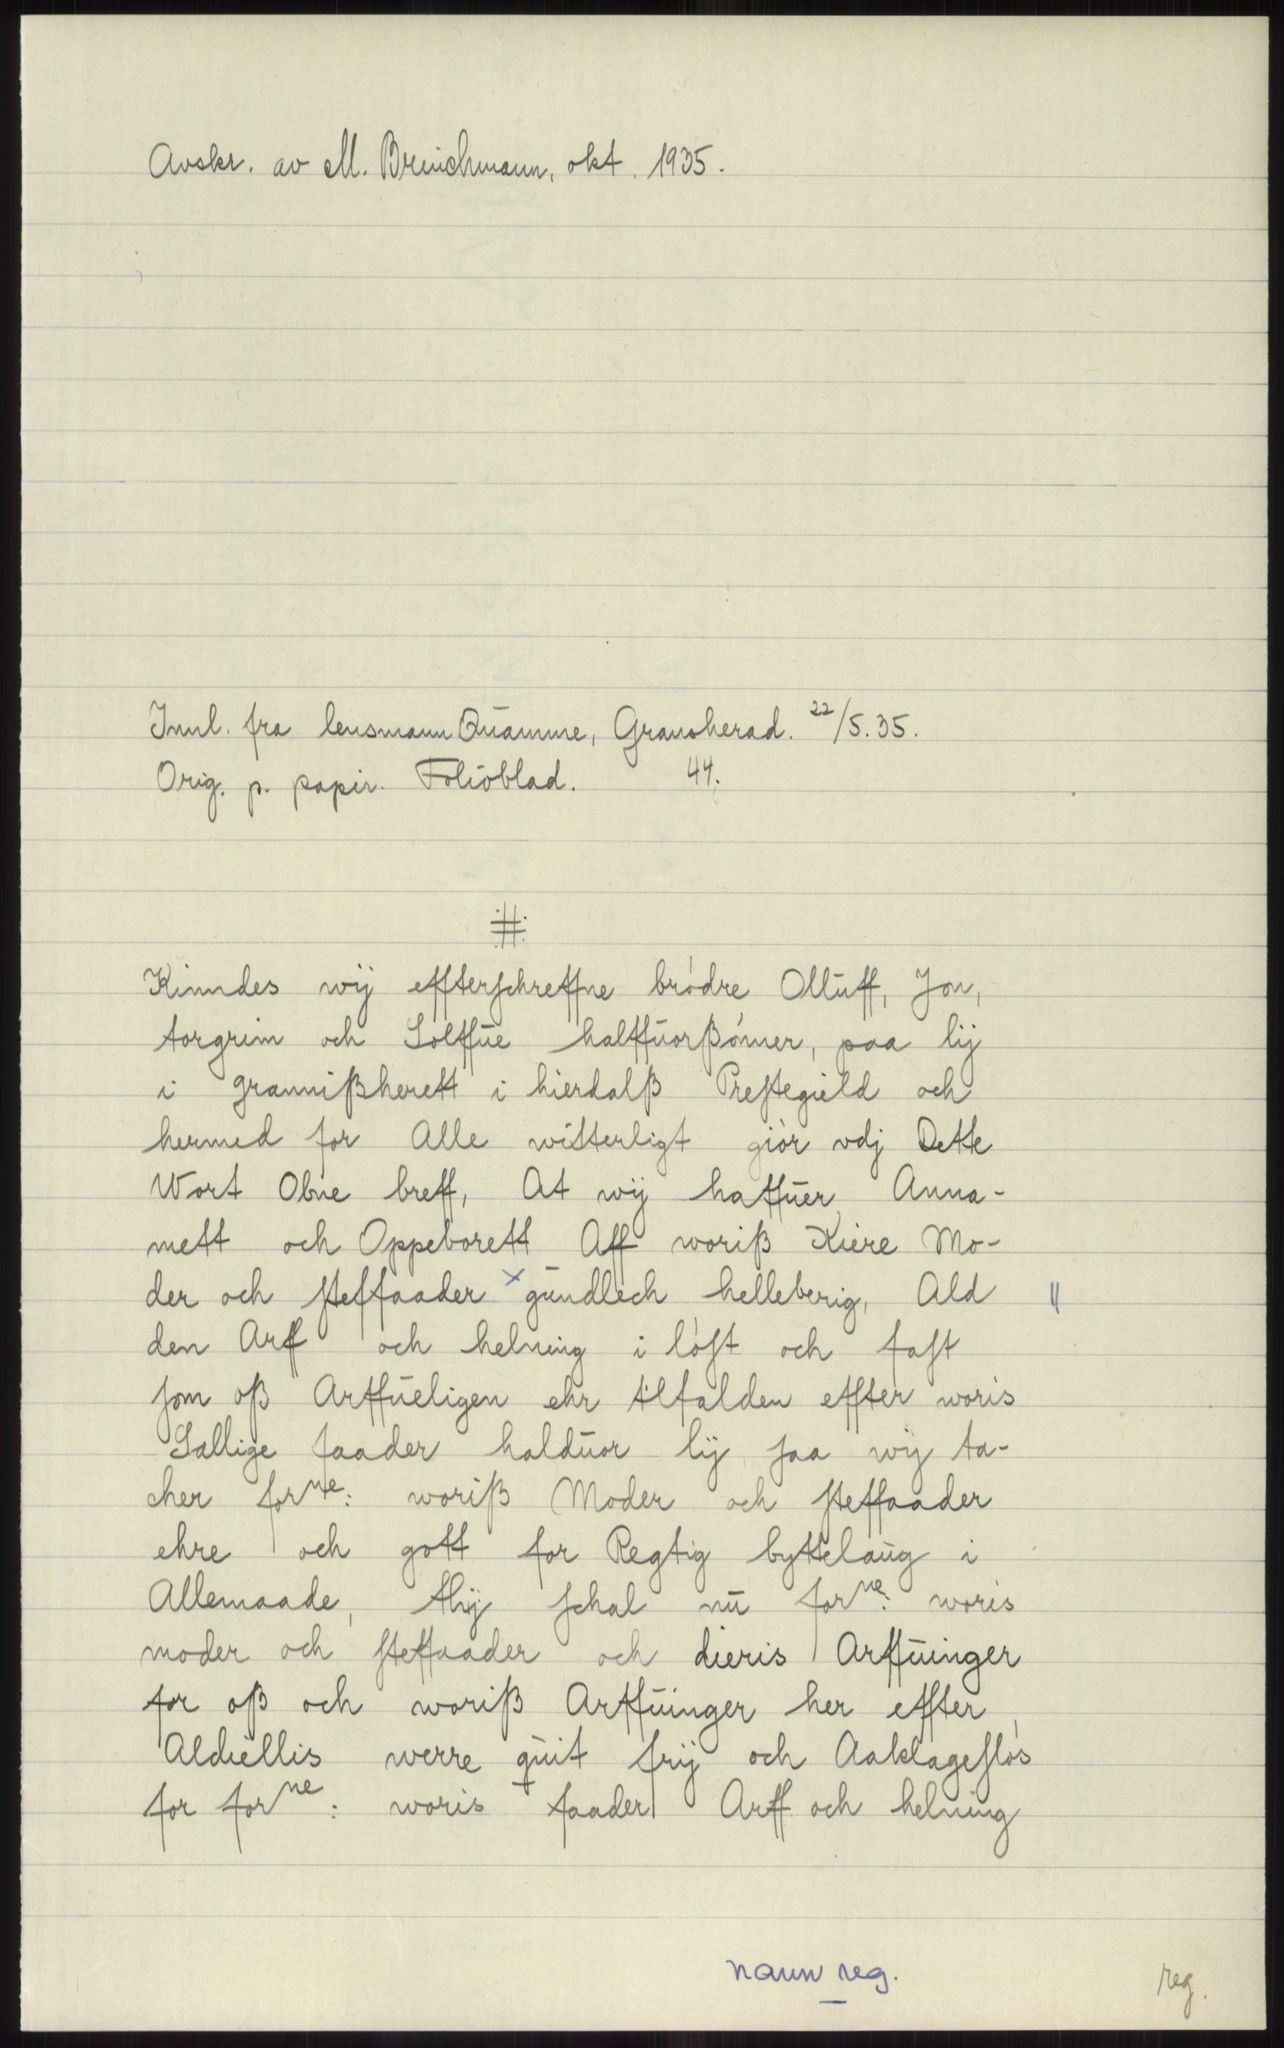 Avskr. av M. Brinchmann, okt. 1935.
Innl. fra lensmann Quamme, Gransherad. 22/5.35.
Orig. p. papir. Folioblad. 44.
:#:
Kinndes wÿ effterschreffne bródre Olluff, Jon,
torgrim och Solffue halffuorßónner, paa lÿ
i grannißherett i hierdalß Prestegield och
hermed for Alle witterligt giór vdj Dette
Wort Obne breff, At wÿ haffuer Anna-
mett och Oppeborett Aff woriß Kiere Mo-
der och steffaader x gundlech helleberig, Ald "
den Arff och helning i lóst och fast
som oß Arffueligen ehr tilfalden effter woris
Sallige faader halduor lÿ, saa wÿ ta-
cher forne: woriß Moder och steffaader
ehre och gott for Regtig byttelaug i
Allemaade, thÿ schal nu forne: woris
moder och steffaader och dieris Arffuinger
for oß och woriß Arffuinger her effter
Aldiellis werre quit frÿ och Aaklageslós
for forne: woris faader Arff och helning
navn reg.
reg.